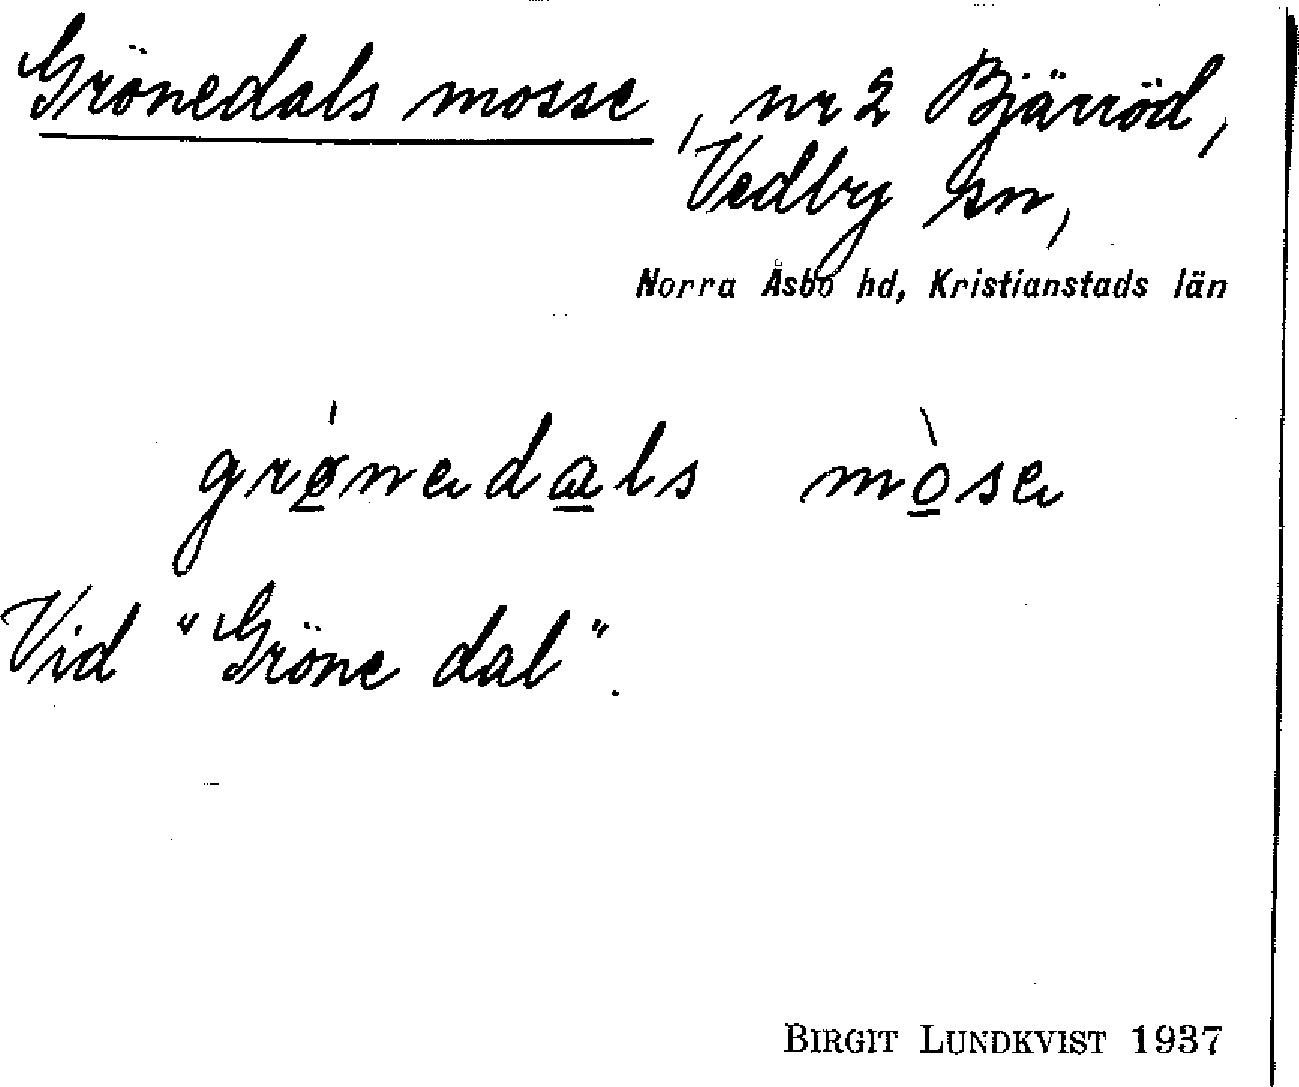 Grönedals mosse, nr 2 Bjärröd,
Vedby sn,
Norra Åsbo hd, Kristianstads län
grǿ̲nedα̲ls mò̲se
Vid "Gröne dal".
BIRGIT LUNDKVIST 1937